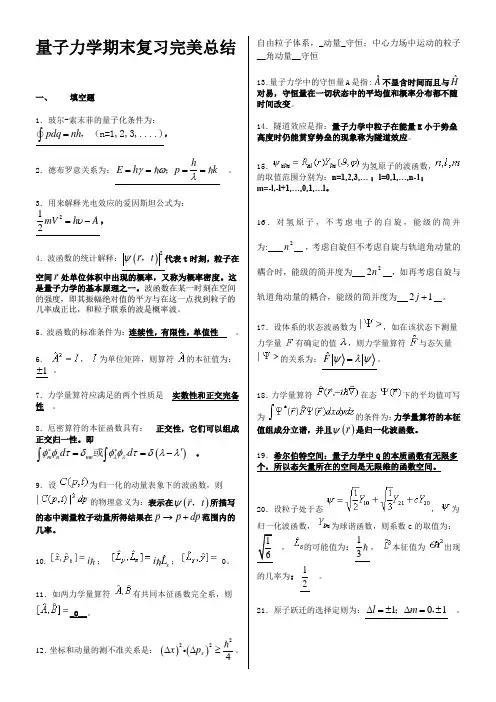 量子力学期末复习完美总结
一、 填空题
1．玻尔-索末菲的量子化条件为：
∮pdq = nh，（n=1,2,3,....），
2．德布罗意关系为：E = hγ = ℏω; p = h/λ = ℏk 。
3．用来解释光电效应的爱因斯坦公式为：
1/2 mV² = hυ − A，
4．波函数的统计解释：|ψ(r，t)|²代表t时刻，粒子在
空间r处单位体积中出现的概率，又称为概率密度。这
是量子力学的基本原理之一。波函数在某一时刻在空间
的强度，即其振幅绝对值的平方与在这一点找到粒子的
几率成正比，和粒子联系的波是概率波。
5．波函数的标准条件为：连续性，有限性，单值性 。
6． Â² = I， I 为单位矩阵，则算符 Â 的本征值为：
±1 。
7．力学量算符应满足的两个性质是 实数性和正交完备
性 。
8．厄密算符的本征函数具有： 正交性，它们可以组成
正交归一性。即
∫φ*ₘφₙdτ = δₘₙ或∫φ*_λφ_λ'dτ = δ(λ − λ') 。
9．设 C(p,t) 为归一化的动量表象下的波函数，则
|C(p,t)|²dp 的物理意义为：表示在ψ(r，t)所描写
的态中测量粒子动量所得结果在p → p + dp范围内的
几率。
10. [x, p̂ₓ] = iℏ； [L̂_y, L̂_z] = iℏL̂ₓ；
11．如两力学量算符 Â, B̂ 有共同本征函数完全系，则
[Â, B̂] = _0__。
12．坐标和动量的测不准关系是： (Δx)²•(Δpₓ)² ≥ ℏ²/4。
自由粒子体系，_动量_守恒；中心力场中运动的粒子
__角动量__守恒
13．量子力学中的守恒量A是指：Â不显含时间而且与Ĥ
对易，守恒量在一切状态中的平均值和概率分布都不随
时间改变。
14．隧道效应是指：量子力学中粒子在能量E小于势垒
高度时仍能贯穿势垒的现象称为隧道效应。
15． ψₙₗₘ = Rₙₗ(r)Yₗₘ(θ,φ) 为氢原子的波函数，n,l,m
的取值范围分别为：n=1,2,3,…；l=0,1,…,n-1；
m=-l,-l+1,…,0,1,…l。
16．对氢原子，不考虑电子的自旋，能级的简并
为： n² ，考虑自旋但不考虑自旋与轨道角动量的
耦合时，能级的简并度为 2n² ，如再考虑自旋与
轨道角动量的耦合，能级的简并度为 2j + 1 。
17．设体系的状态波函数为 |Ψ>，如在该状态下测量
力学量 F 有确定的值 λ，则力学量算符 F̂ 与态矢量
|Ψ> 的关系为：F̂|ψ⟩ = λ|ψ⟩。
18．力学量算符 F̂(r̂,-iℏ∇) 在态 Ψ(r) 下的平均值可写
为 ∫Ψ*(r)F̂Ψ(r)dxdydz 的条件为：力学量算符的本征
值组成分立谱，并且ψ(r)是归一化波函数。
19．希尔伯特空间：量子力学中Q的本质函数有无限多
个，所以态矢量所在的空间是无限维的函数空间。
20．设粒子处于态 ψ = √(1/3)Y₁₀ + √(1/2)Y₂₁ + cY₂₀ ， ψ 为
归一化波函数， Yₗₘ 为球谐函数，则系数c的取值为：
√(1/6) ， 的可能值为：1/3 ℏ ， 本征值为 6ℏ² 出现
的几率为：1/2 。
21．原子跃迁的选择定则为：Δl = ±1; Δm = 0，±1 。